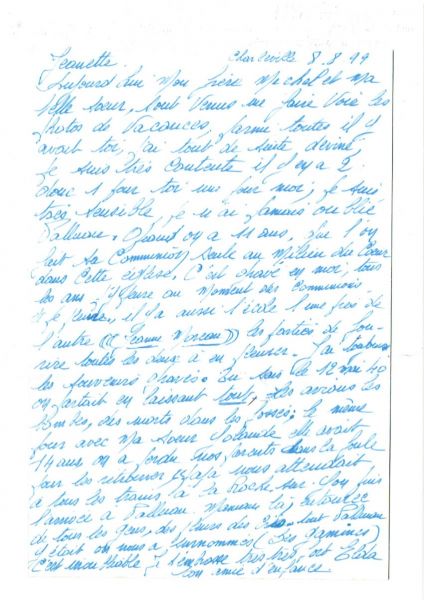 Jeanette. Charleville 8.8.99
Aujourd'hui Mon frère Michel et Ma
belle sœur, sont venus me faire voir les
photos de Vacances, parmi toutes il y
avait toi, j'ai tout de suite deviné,
Je suis très contente il y a 2.
donc 1 pour toi une pour moi, Je suis
très sensible je n'ai jamais oublié
Palluau. Quand on a 11 ans, que l'on
fait sa Communion seule au Milieu du Cœur
dans cette église. C'est gravé en moi, tous
les ans au Moment des Communions
Je, il y a aussi l'école l'une près de
l'autre (( Jeanne Moreau )) les parties de Sou-
rire toutes les deux à en pleurer. J'ai toujours
les souvenirs gravés. Tu sais le 12 mai 40
on partait en laissant tout, les avions les
bombes, des morts dans les fossés; le même
jour avec Ma sœur Yolande elle avait
14 ans on a perdu nos parents dans la foule
pour les retrouver Papa nous attendait
à tous les trains à La Roche sur. Yon puis
l'arrivée à Palluau, Maman là, entourée
de tous les gens, des pleurs des tout Palluau
y était on nous a surnommés (Les gamines)
C'est inoubliable je t'embrasse très très fort Elda
ton amie d'enfance.